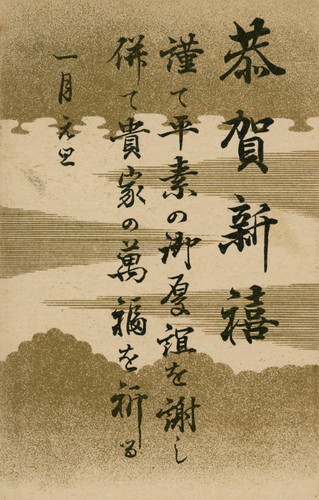 恭賀新禧
謹て平素の御厚誼を謝し
併て貴家の萬福を祈る
一月元旦